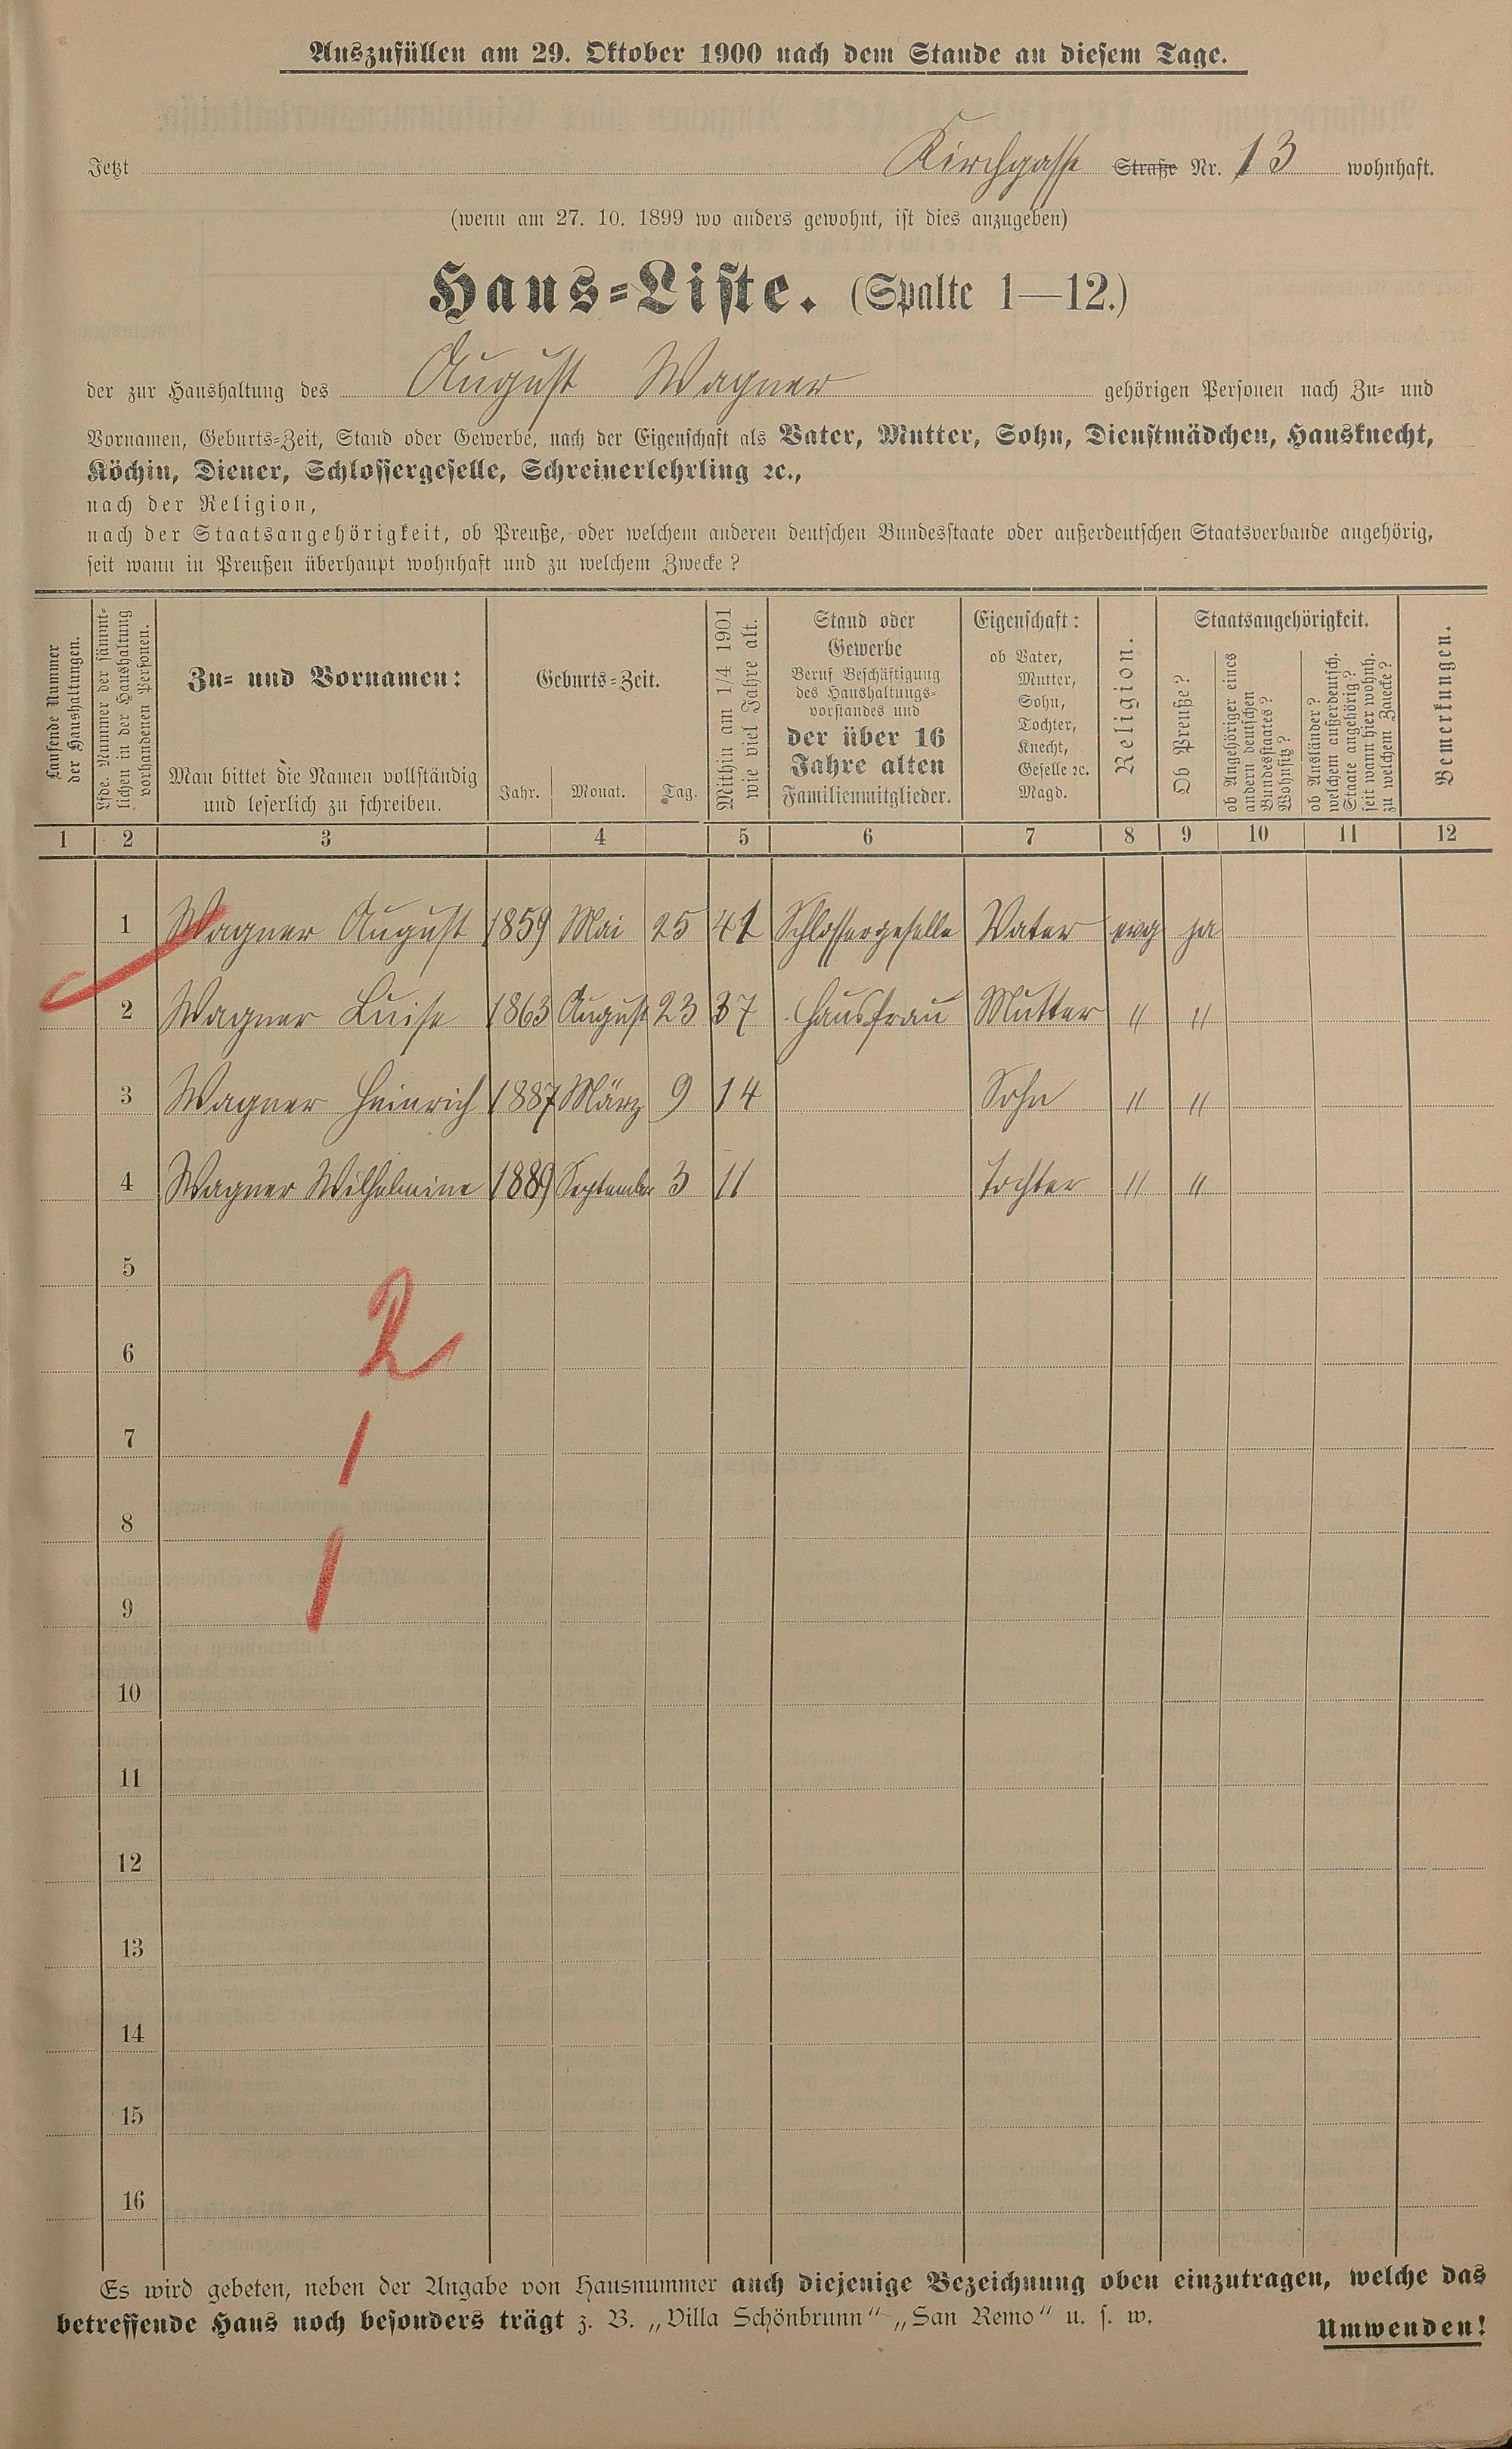 Auszufüllen am 29. Oktober 1900 nach dem Stande an diesem Tage.
Jetzt Kirchgasse Straße Nr. 13 wohnhaft.
(wenn am 27. 10. 1899 wo anders gewohnt, ist dies anzugeben)
Haus-Liste. (Spalte 1—12.)
der zur Haushaltung des August Wagner gehörigen Personen nach Zu- und
Vornamen, Geburts-Zeit, Stand oder Gewerbe, nach der Eigenschaft als Vater, Mutter, Sohn, Dienstmädchen, Hausknecht,
Köchin, Diener, Schlossergeselle, Schreinerlehrling ꝛc.,
nach der Religion,
nach der Staatsangehörigkeit, ob Preuße, oder welchem anderen deutschen Bundesstaate oder außerdeutschen Staatsverbande angehörig,
seit wann in Preußen überhaupt wohnhaft und zu welchem Zwecke?
Laufende Nummer
der Haushaltungen.
Lfde. Nummer der sämmt-
lichen in der Haushaltung
vorhandenen Personen.
Zu- und Vornamen:
Man bittet die Namen vollständig
und leserlich zu schreiben.
Geburts-Zeit.
Jahr. Monat. Tag.
Mithin am 1/4 1901
wie viel Jahre alt.
Stand oder
Gewerbe
Beruf Beschäftigung
des Haushaltungs-
vorstandes und
der über 16
Jahre alten
Familienmitglieder.
Eigenschaft:
ob Vater,
Mutter,
Sohn,
Tochter,
Knecht,
Geselle ꝛc.
Magd.
Religion.
Staatsangehörigkeit.
Ob Preuße?
ob Angehöriger eines
andern deutschen
Bundesstaates?
Wohnsitz?
ob Ausländer?
welchem außerdeutsch.
Staate angehörig?
seit wann hier wohnh.
zu welchem Zwecke?
Bemerkungen.
1 2 3 4 5 6 7 8 9 10 11 12
1 Wagner August 1859 Mai 25 41 Schlossergeselle Vater evg ja
2 Wagner Luise 1863 August 23 37 Hausfrau Mutter " "
3 Wagner Heinrich 1887 März 9 14 Sohn " "
4 Wagner Wilhelmine 1889 September 3 11 Tochter " "
5
6 2
7 1
8
9 1
10
11
12
13
14
15
16
Es wird gebeten, neben der Angabe von Hausnummer auch diejenige Bezeichnung oben einzutragen, welche das
betreffende Haus noch besonders trägt z. B. „Villa Schönbrunn" „San Remo" u. s. w.
Umwenden!